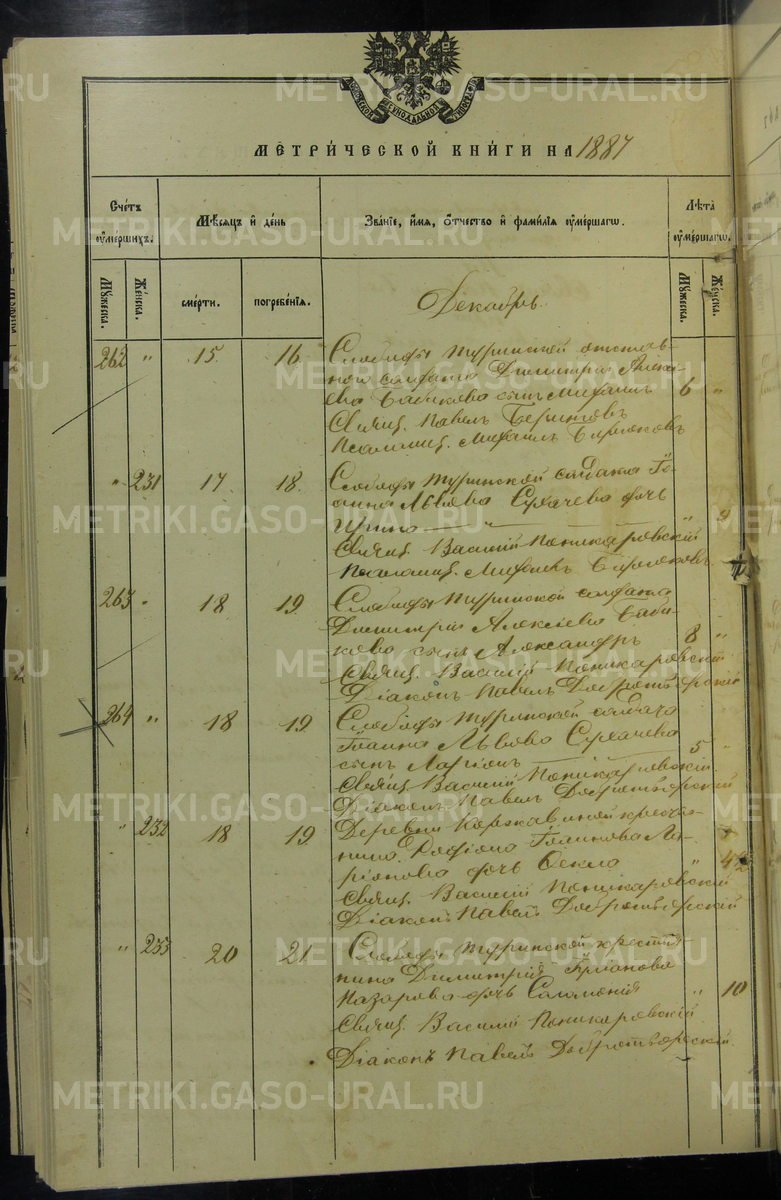 МЕТРИ́ЧЕСКОЙ КНИ́ГИ НА 1887
Сче́тъ ᲂу҆ме́ршихъ.
Мѣ́сѧцъ и҆ де́нь
Зва́нїе, и҆́мѧ, ѻ҆́тчество и҆ фами́лїѧ ᲂу҆ме́ршагѡ.
Лѣ́та ᲂу҆ме́ршагѡ.
Му́жеска.
Же́нска.
сме́рти.
погребе́нїѧ.
Му́жеска.
Же́нска.
Декабрь.
262 " 15 16 Слободы Туринской отстав-
ного солдата Димитрія Алекс
ѣева Бабикова сынъ Михаилъ 6 "
Свящ. Павелъ
Псаломщ. Михаилъ Бирюковъ
" 231 17 18 Слободы Туринской солдата Іо-
анна Львова Сухачева дочь
Ирина " 9
Свящ. Василій Поникаровскій
Псаломщ. Михаилъ Бирюковъ
263 " 18 19 Слободы Туринской солдата
Димитрія Алексіева Баби-
кова сынъ Александръ 8 "
Свящ. Василій Поникаровскій
Діаконъ Павелъ Добротворскій
264 " 18 19 Слободы Туринской солдата
Іоанна Львова Сухачева
сынъ Ларіонъ 5 "
Свящ. Василій Поникаровскій
Діаконъ Павелъ Добротворскій
" 232 18 19 Деревни Коржавиной кресть-
нина Родіона Іоаннова Ла-
ріонова дочь Ѳекла " 4
Свящ. Василій Поникаровскій
Діаконъ Павелъ Добротворскій
" 233 20 21 Слободы Туринской крестья
нина Димитрія
Назарова дочь Саломонія " 10
Свящ. Василій Поникаровскій
Діаконъ Павелъ Добротворскій
METRIKI.GASO-URAL.RU